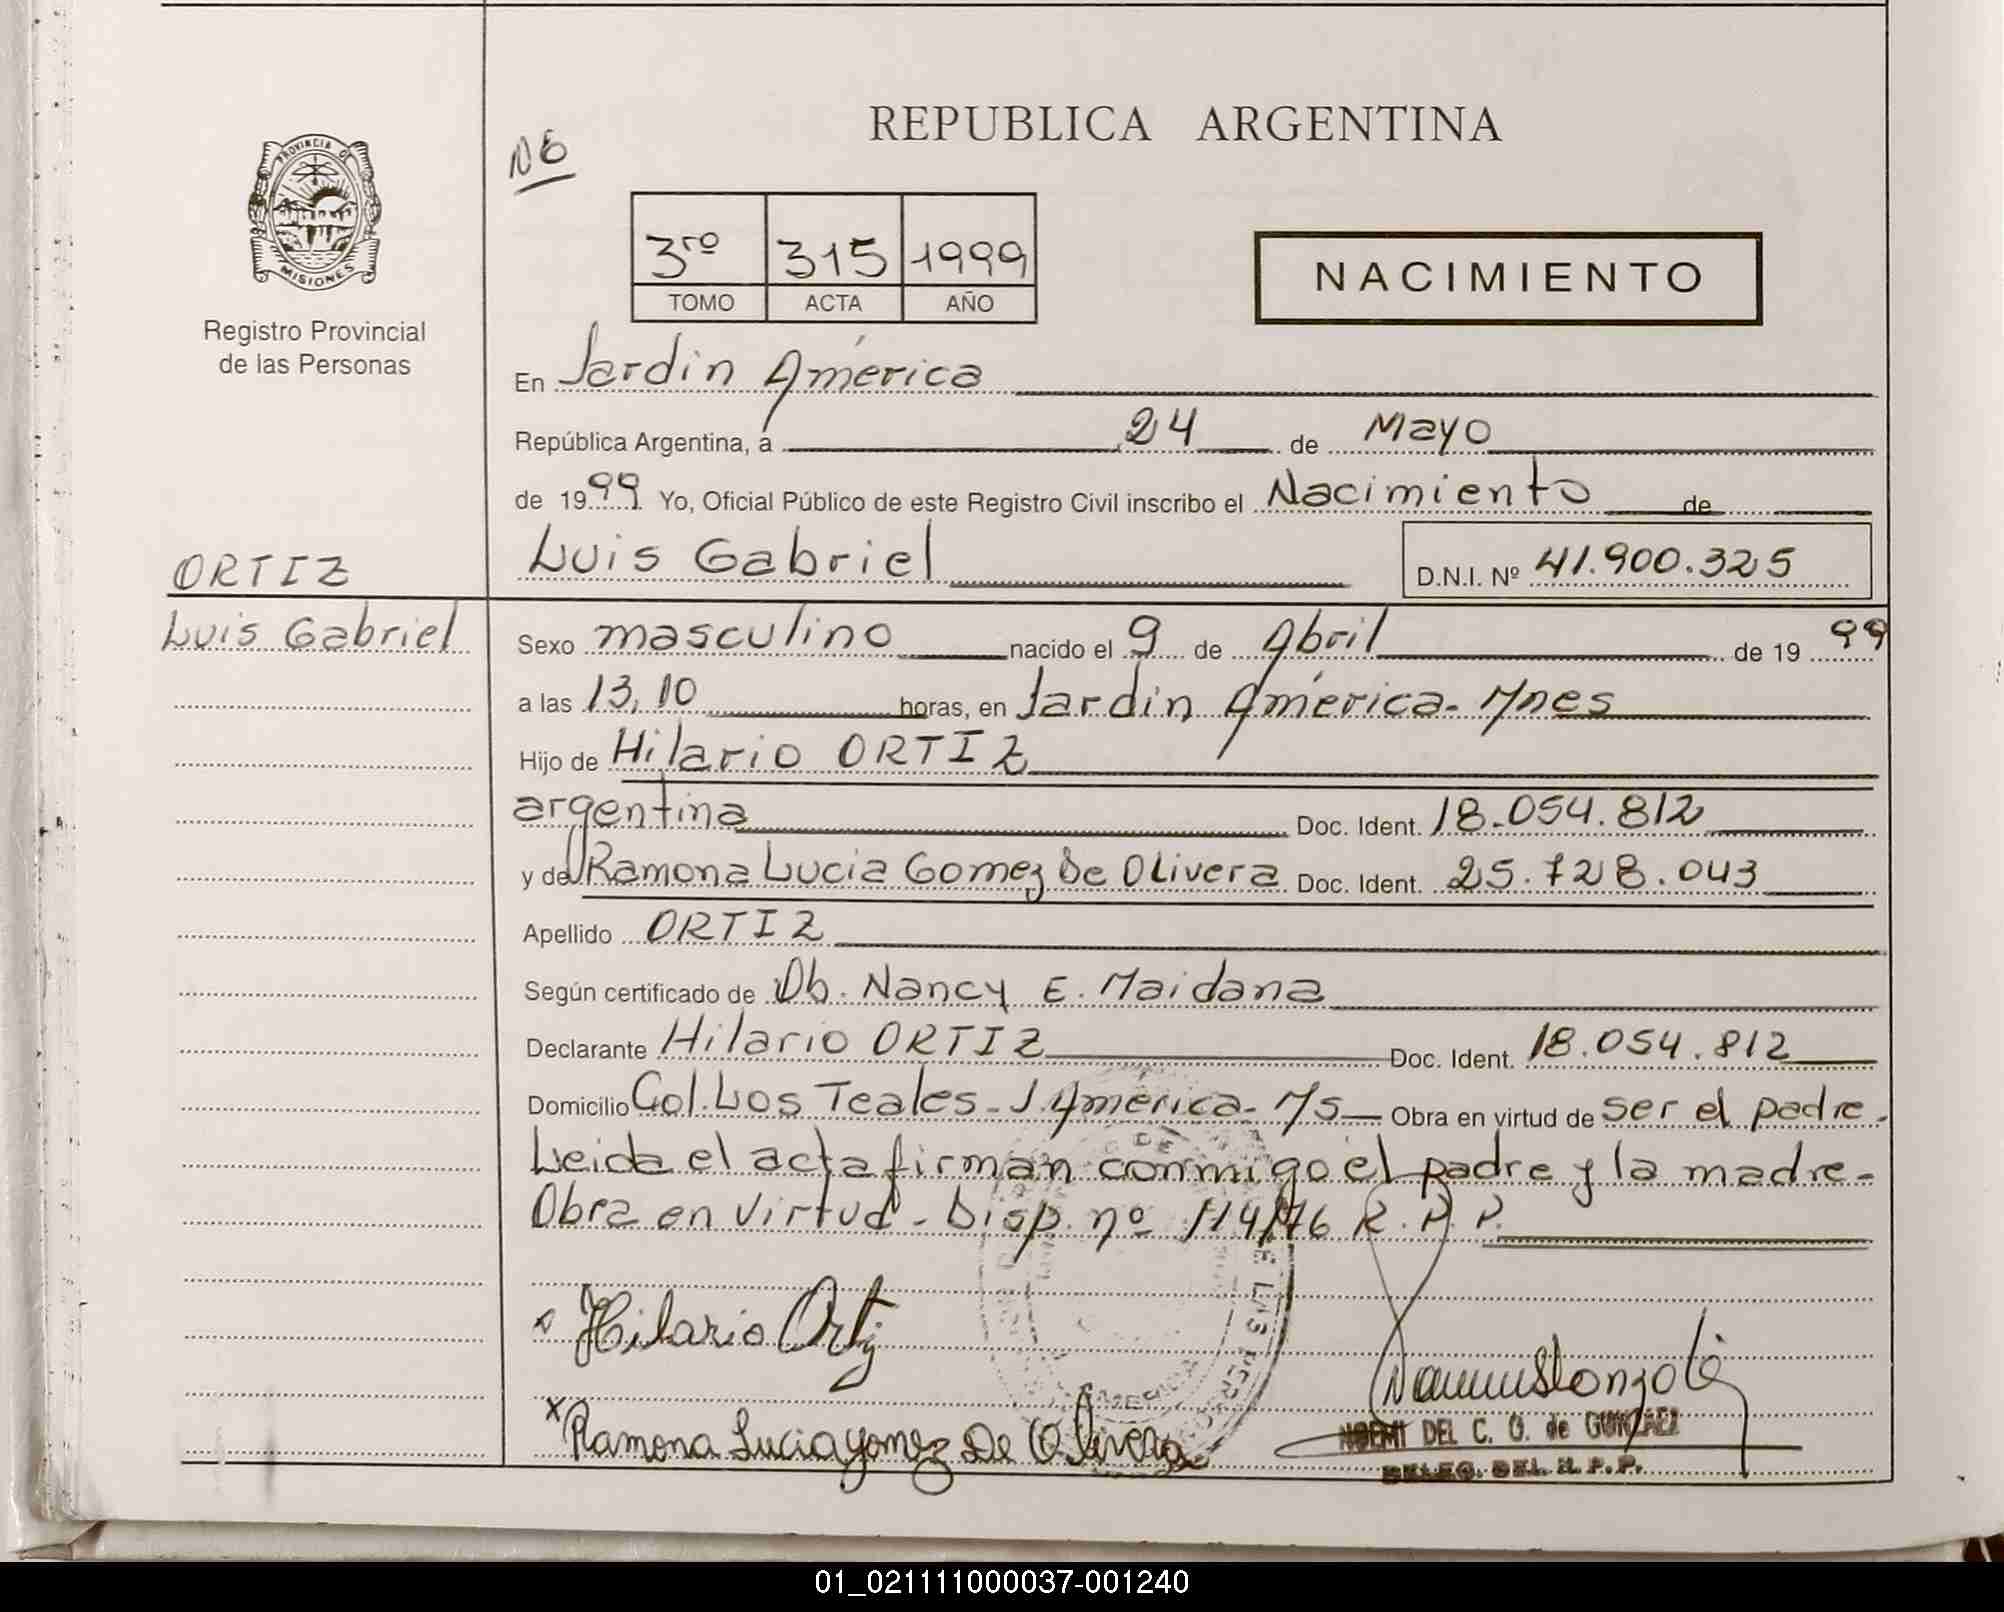 REPUBLICA ARGENTINA
PROVINCIA DE
MISIONES
Registro Provincial
de las Personas
3ro 315 1999
TOMO ACTA AÑO
NACIMIENTO
En Jardin América
República Argentina, a 24 de Mayo
de 1999 Yo, Oficial Público de este Registro Civil inscribo el Nacimiento de
Luis Gabriel D.N.I. Nº 41.900.325
ORTIZ
Luis Gabriel
Sexo masculino nacido el 9 de Abril de 1999
a las 13,10 horas, en Jardin América - Mnes
Hijo de Hilario ORTIZ
argentina Doc. Ident. 18.054.812
y de Ramona Lucia Gomez De Olivera Doc. Ident. 25.728.043
Apellido ORTIZ
Según certificado de Ob. Nancy E. Maidana
Declarante Hilario ORTIZ Doc. Ident. 18.054.812
Domicilio Col. Los Teales - J. América - Ms Obra en virtud de ser el padre -
Leida el acta firman conmigo el padre y la madre -
Obra en virtud - Disp. nº 114/76 R. P. P.
x Hilario Ortiz
x Ramona Lucia gomez De Olivera
NOEMI DEL C. O. de GONZALEZ
DELEG. DEL R. P. P.
01_021111000037-001240